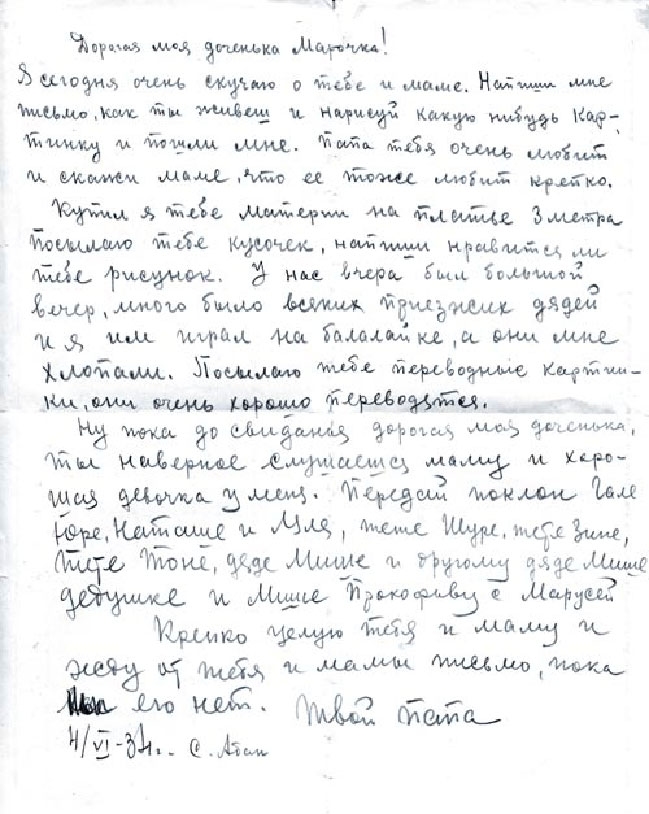 Дорогая моя доченька Марочка!
Я сегодня очень скучаю о тебе и маме. Напиши мне
письмо, как ты живеш и нарисуй какую нибудь кар-
тинку и пошли мне. Папа тебя очень любит
и скажи маме, что ее тоже любит крепко.
Купил я тебе материи на платье 3 метра
посылаю тебе кусочек, напиши нравится ли
тебе рисунок. У нас вчера был большой
вечер, много было всяких приезжих дядей
и я им играл на балалайке, а они мне
хлопали. Посылаю тебе переводные картин-
ки, они очень хорошо переводятся.
Ну пока до свиданья дорогая моя доченька,
ты наверное слушаешся маму и харо-
шая девочка у меня. Передай поклон Гале
Юре, Наташе и Ляле, тете Шуре, тете Зине,
тете Тоне, дяде Мише и другому дяде Мише
дедушке и Мише Прокофиву с Марусей
Крепко целую тебя и маму и
жду от тебя и мамы письмо, пока
его нет. Твой папа
4/VI-34.